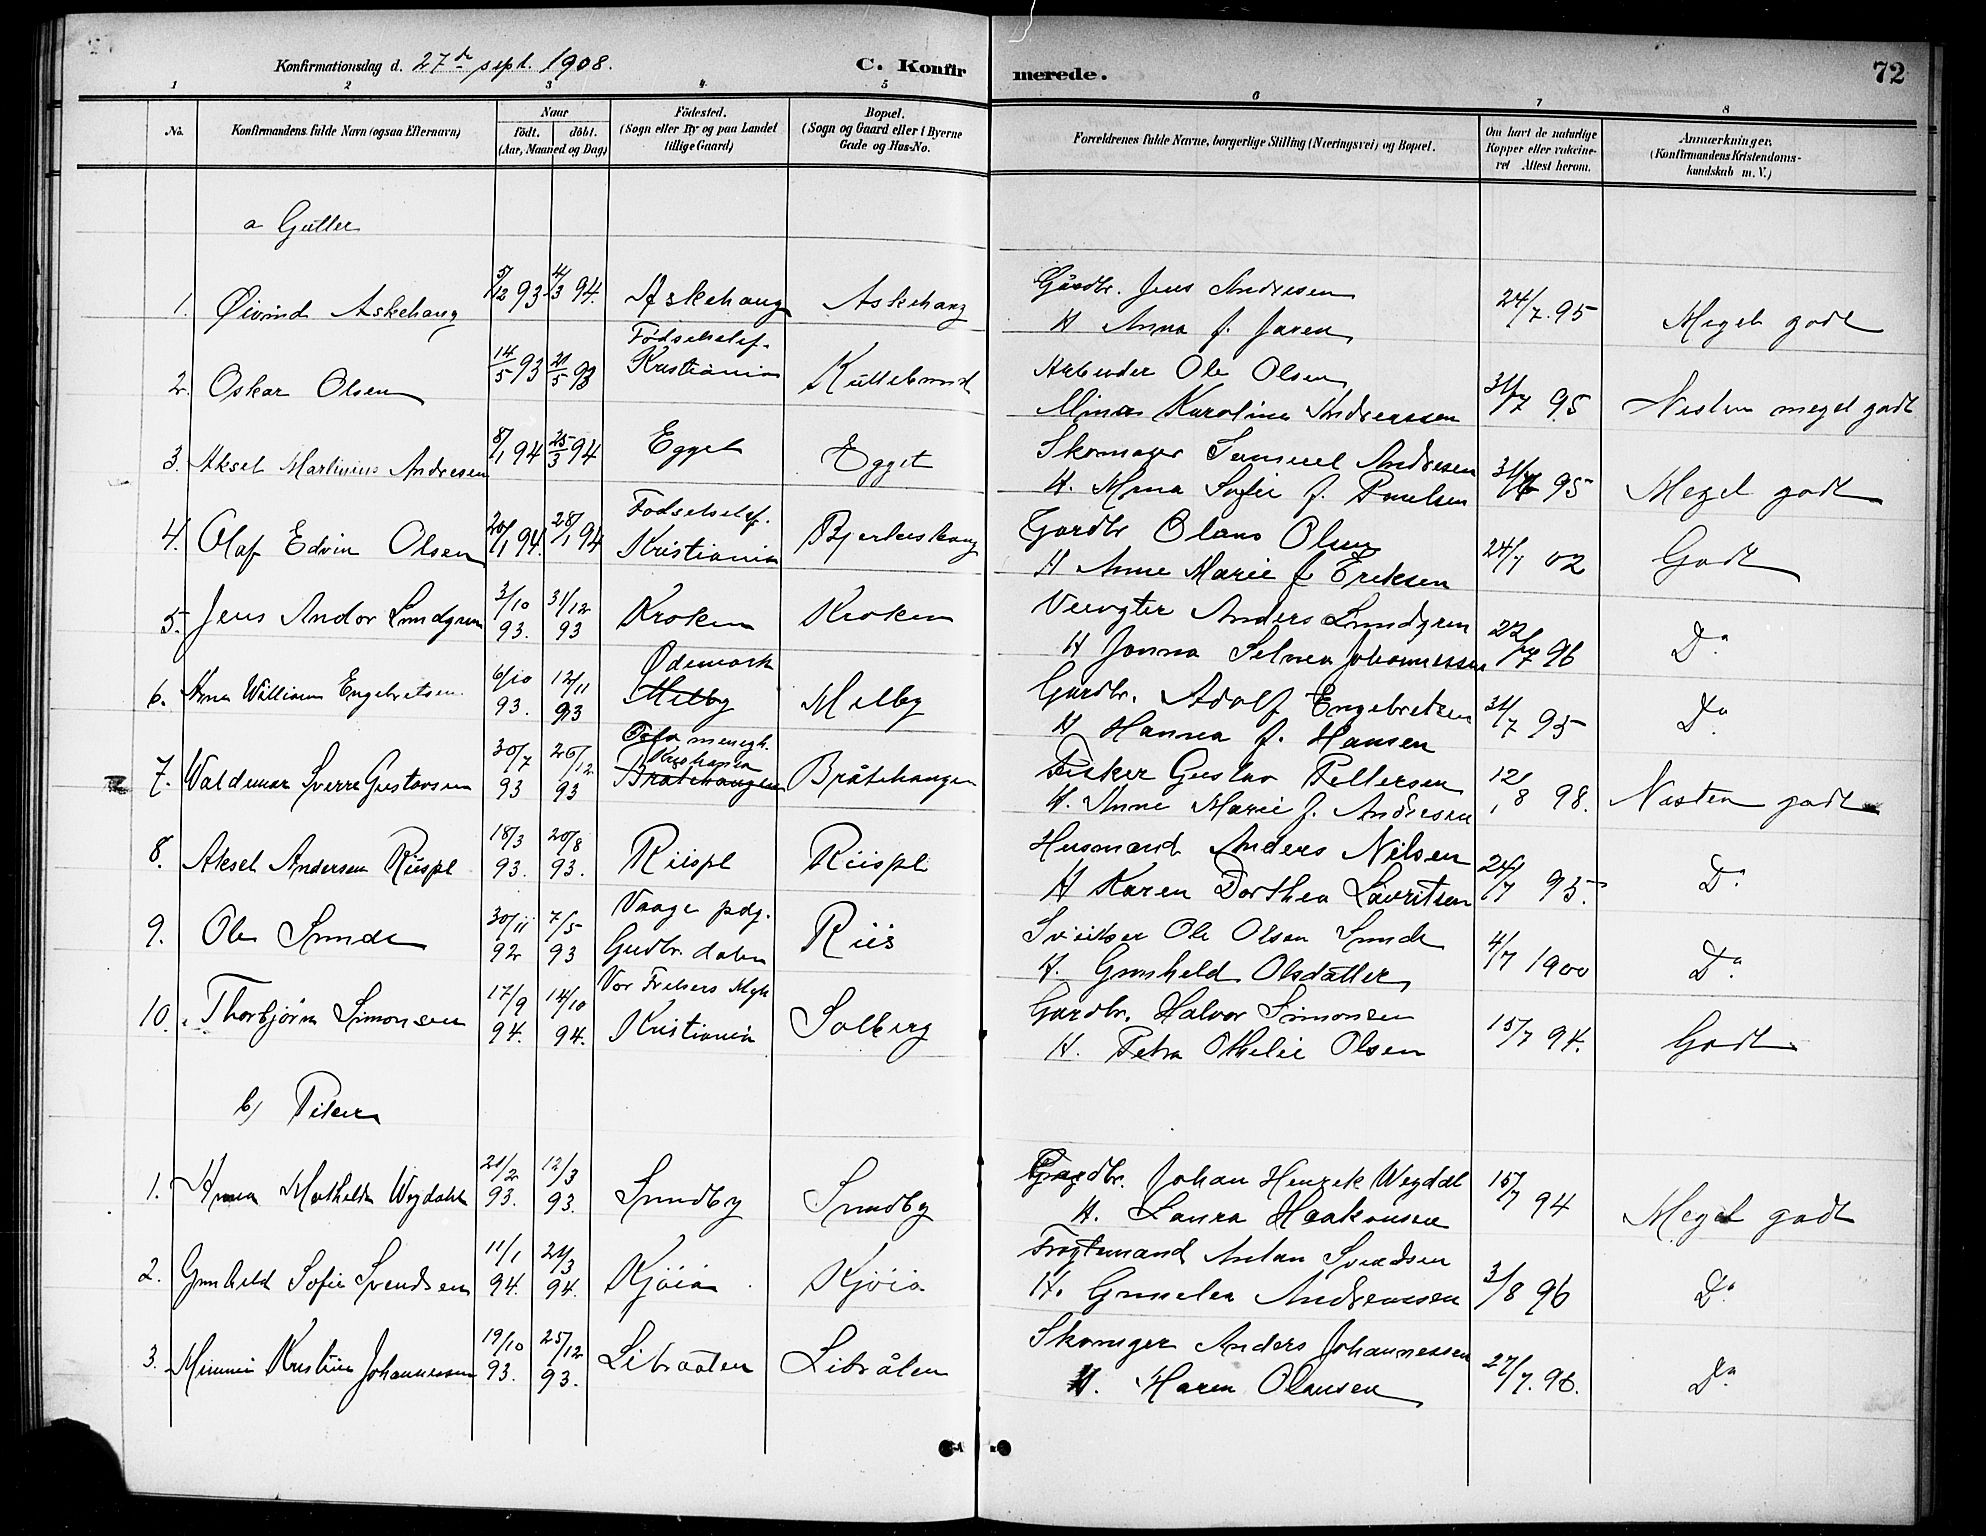 Konfirmationsdag d. 27de sept. 1908.
C. Konfirmerede.
72
1 2 3 4 5 6 7 8
No.
Konfirmandens fulde Navn (ogsaa Efternavn)
Naar
födt. döbt.
(Aar, Maaned og Dag)
Födested.
(Sogn eller By og paa Landet
tillige Gaard)
Bopæl.
(Sogn og Gaard eller i Byerne
Gade og Hus-No.
Forældrenes fulde Navne, borgerlige Stilling (Næringsvei) og Bopæl.
Om havt de naturlige
Kopper eller vakcine-
ret Attest herom.
Anmærkninger.
(Konfirmandens Kristendoms-
kundskab m. V.)
a Gutter
1. Øivind Askehaug 5/12 93 4/3 94. Askehaug Askehaug Gårdbr. Jens Andresen
H Anna f. Jaren 24/7 95 Meget godt
2. Oskar Olsen 14/5 93 21/5 93 Födselsstf. Kristiania Kullebund Arbeider Ole Olsen
Mina Karoline Andreassen 31/7 95 Næsten meget godt
3. Aksel Martinius Andresen 8/1 94 25/3 94 Egget Egget Skomager Samuel Andresen
H. Mina Sofie f. Paulsen 31/7 95 Meget godt
4. Olaf Edvin Olsen 20/1 94. 28/1 94 Fodselsstf. Kristiania Bjerkeshaug Gardbr Olaus Olsen
H Anne Marie f Eriksen 24/1 02 Godt
5. Jens Andor Lundgren 3/10 93. 31/12 93 Kroken Kroken Veivogter Anders Lundgren
H Janna Selnea Johannessen 22/7 96 Do
6. Arne William Engebretsen 6/10 93. 12/11 93 Ødemark Melby Melby Gardbr. Adolf Engebretsen
H Hanna f. Hansen 31/7 95 Do
7. Valdemar Sverre Gustavsen 30/7 93 26/12 93 menigh. Kristiania Bråtehaugen Bråtehaugen Fisker Gustav Pettersen
H. Anne Marie f. Andresen 12/8 98. Næsten godt
8. Aksel Andersen Riispl 18/3 93. 20/8 93. Riispl Riispl Husmand Anders Nilsen
H Karen Dorthea Lauritsen 24/7 95. Do
9. Ole Sunde 30/11 92 7/5 93 Vaage pdg. Gudbr. dalen Riis Sveitser Ole Olsen Sunde
H. Gunhild Olsdatter 4/7 1900 Do
10. Thorbjörn Simonsen 17/9 94. 14/10 94. Vor Frelsers Mgh Kristiania Solberg Gardbr. Halvor Simonsen
H. Petra Othelie Olsen 15/7 94. Godt
b) Piker
1. Anna Mathilde Wegdahl 21/2 93. 12/3 93. Sundby Sundby Gardbr. Johan Henrik Wegdal
H. Laura Haakonsen 15/7 94 Meget godt
2. Gunhild Sofie Svendsen 11/1 94. 21/3 94. Kjöia Kjöia Fragtemand Anton Svendsen
H. Gunelia Andreassen 3/8 96 Do
3. Minnie Kristine Johannessen 19/10 93. 25/12 93. Libraaten Libråten Skomager Anders Johannessen
H. Maren Olausen 27/7. 96. Do